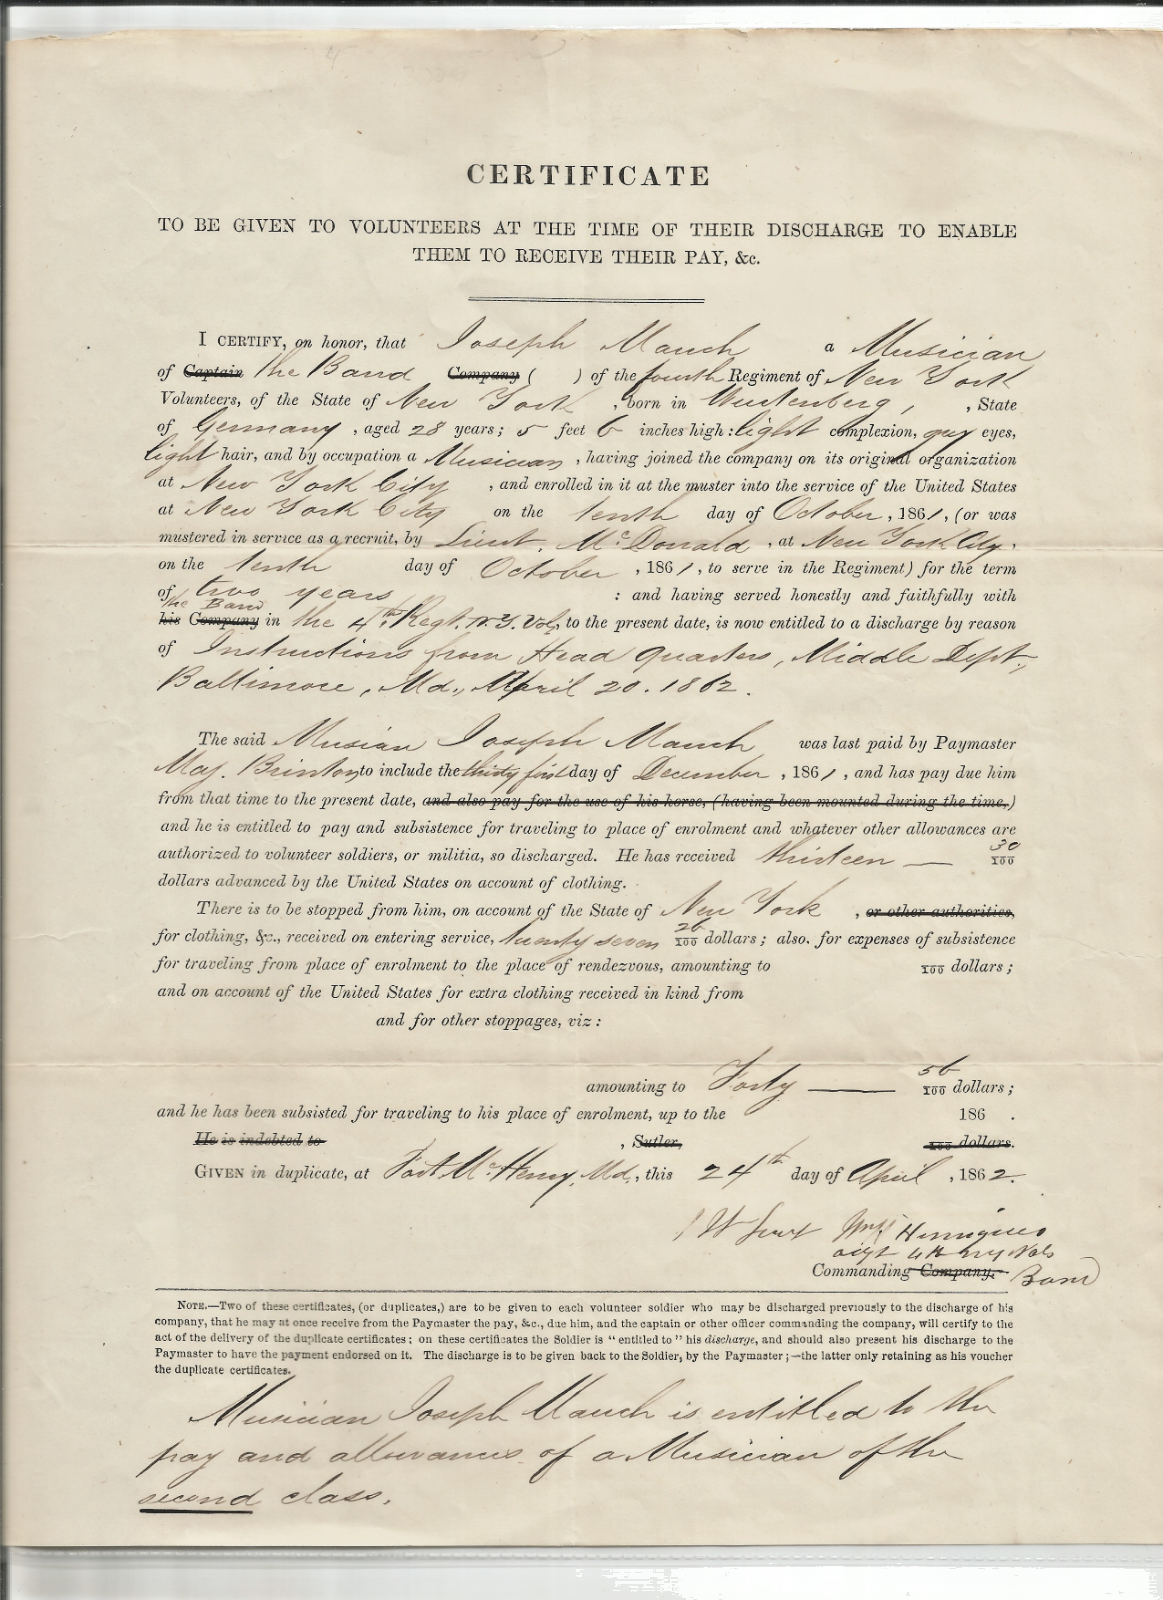 CERTIFICATE
TO BE GIVEN TO VOLUNTEERS AT THE TIME OF THEIR DISCHARGE TO ENABLE
THEM TO RECEIVE THEIR PAY, &c.
I CERTIFY, on honor, that Joseph Mauch a Musician
of Captain the Band Company ( ) of the fourth Regiment of New York
Volunteers, of the State of New York, born in Wurtenberg, , State
of Germany, aged 28 years; 5 feet 6 inches high: light complexion, gray eyes,
light hair, and by occupation a Musician, having joined the company on its original organization
at New York City, and enrolled in it at the muster into the service of the United States
at New York City on the tenth day of October, 1861, (or was
mustered in service as a recruit, by Lieut. McDonald, at New York City.
on the tenth day of October, 1861, to serve in the Regiment) for the term
of two years : and having served honestly and faithfully with
the Band
his Company in the 4th Regt. N.Y. Vol., to the present date, is now entitled to a discharge by reason
of Instructions from Head Quarters, Middle Dept.,
Baltimore, Md., April 20. 1862.
The said Musian Joseph Mauch was last paid by Paymaster
Maj. Brinton to include the thirty first day of December, 1861, and has pay due him
from that time to the present date, and also pay for the use of his horse, (having been mounted during the time,)
and he is entitled to pay and subsistence for traveling to place of enrolment and whatever other allowances are
authorized to volunteer soldiers, or militia, so discharged. He has received thirteen — 30/100
dollars advanced by the United States on account of clothing.
There is to be stopped from him, on account of the State of New York, or other authorities,
for clothing, &c., received on entering service, twenty seven 26/100 dollars; also. for expenses of subsistence
for traveling from place of enrolment to the place of rendezvous, amounting to /100 dollars;
and on account of the United States for extra clothing received in kind from
and for other stoppages, viz:
amounting to Forty — 56/100 dollars;
and he has been subsisted for traveling to his place of enrolment, up to the 186 .
He is indebted to , Sutler, /100 dollars.
GIVEN in duplicate, at Fort McHenry, Md., this 24th day of April, 1862.
1st Lieut Wm H Henriques
adjt 4th NY Vols
Commanding Company. Band
NOTE.—Two of these certificates, (or duplicates,) are to be given to each volunteer soldier who may be discharged previously to the discharge of his
company, that he may at once receive from the Paymaster the pay, &c., due him, and the captain or other officer commanding the company, will certify to the
act of the delivery of the duplicate certificates; on these certificates the Soldier is "entitled to" his discharge, and should also present his discharge to the
Paymaster to have the payment endorsed on it. The discharge is to be given back to the Soldier, by the Paymaster;—the latter only retaining as his voucher
the duplicate certificates.
Musician Joseph Mauch is entitled to the
pay and allowances of a Musician of the
second class.